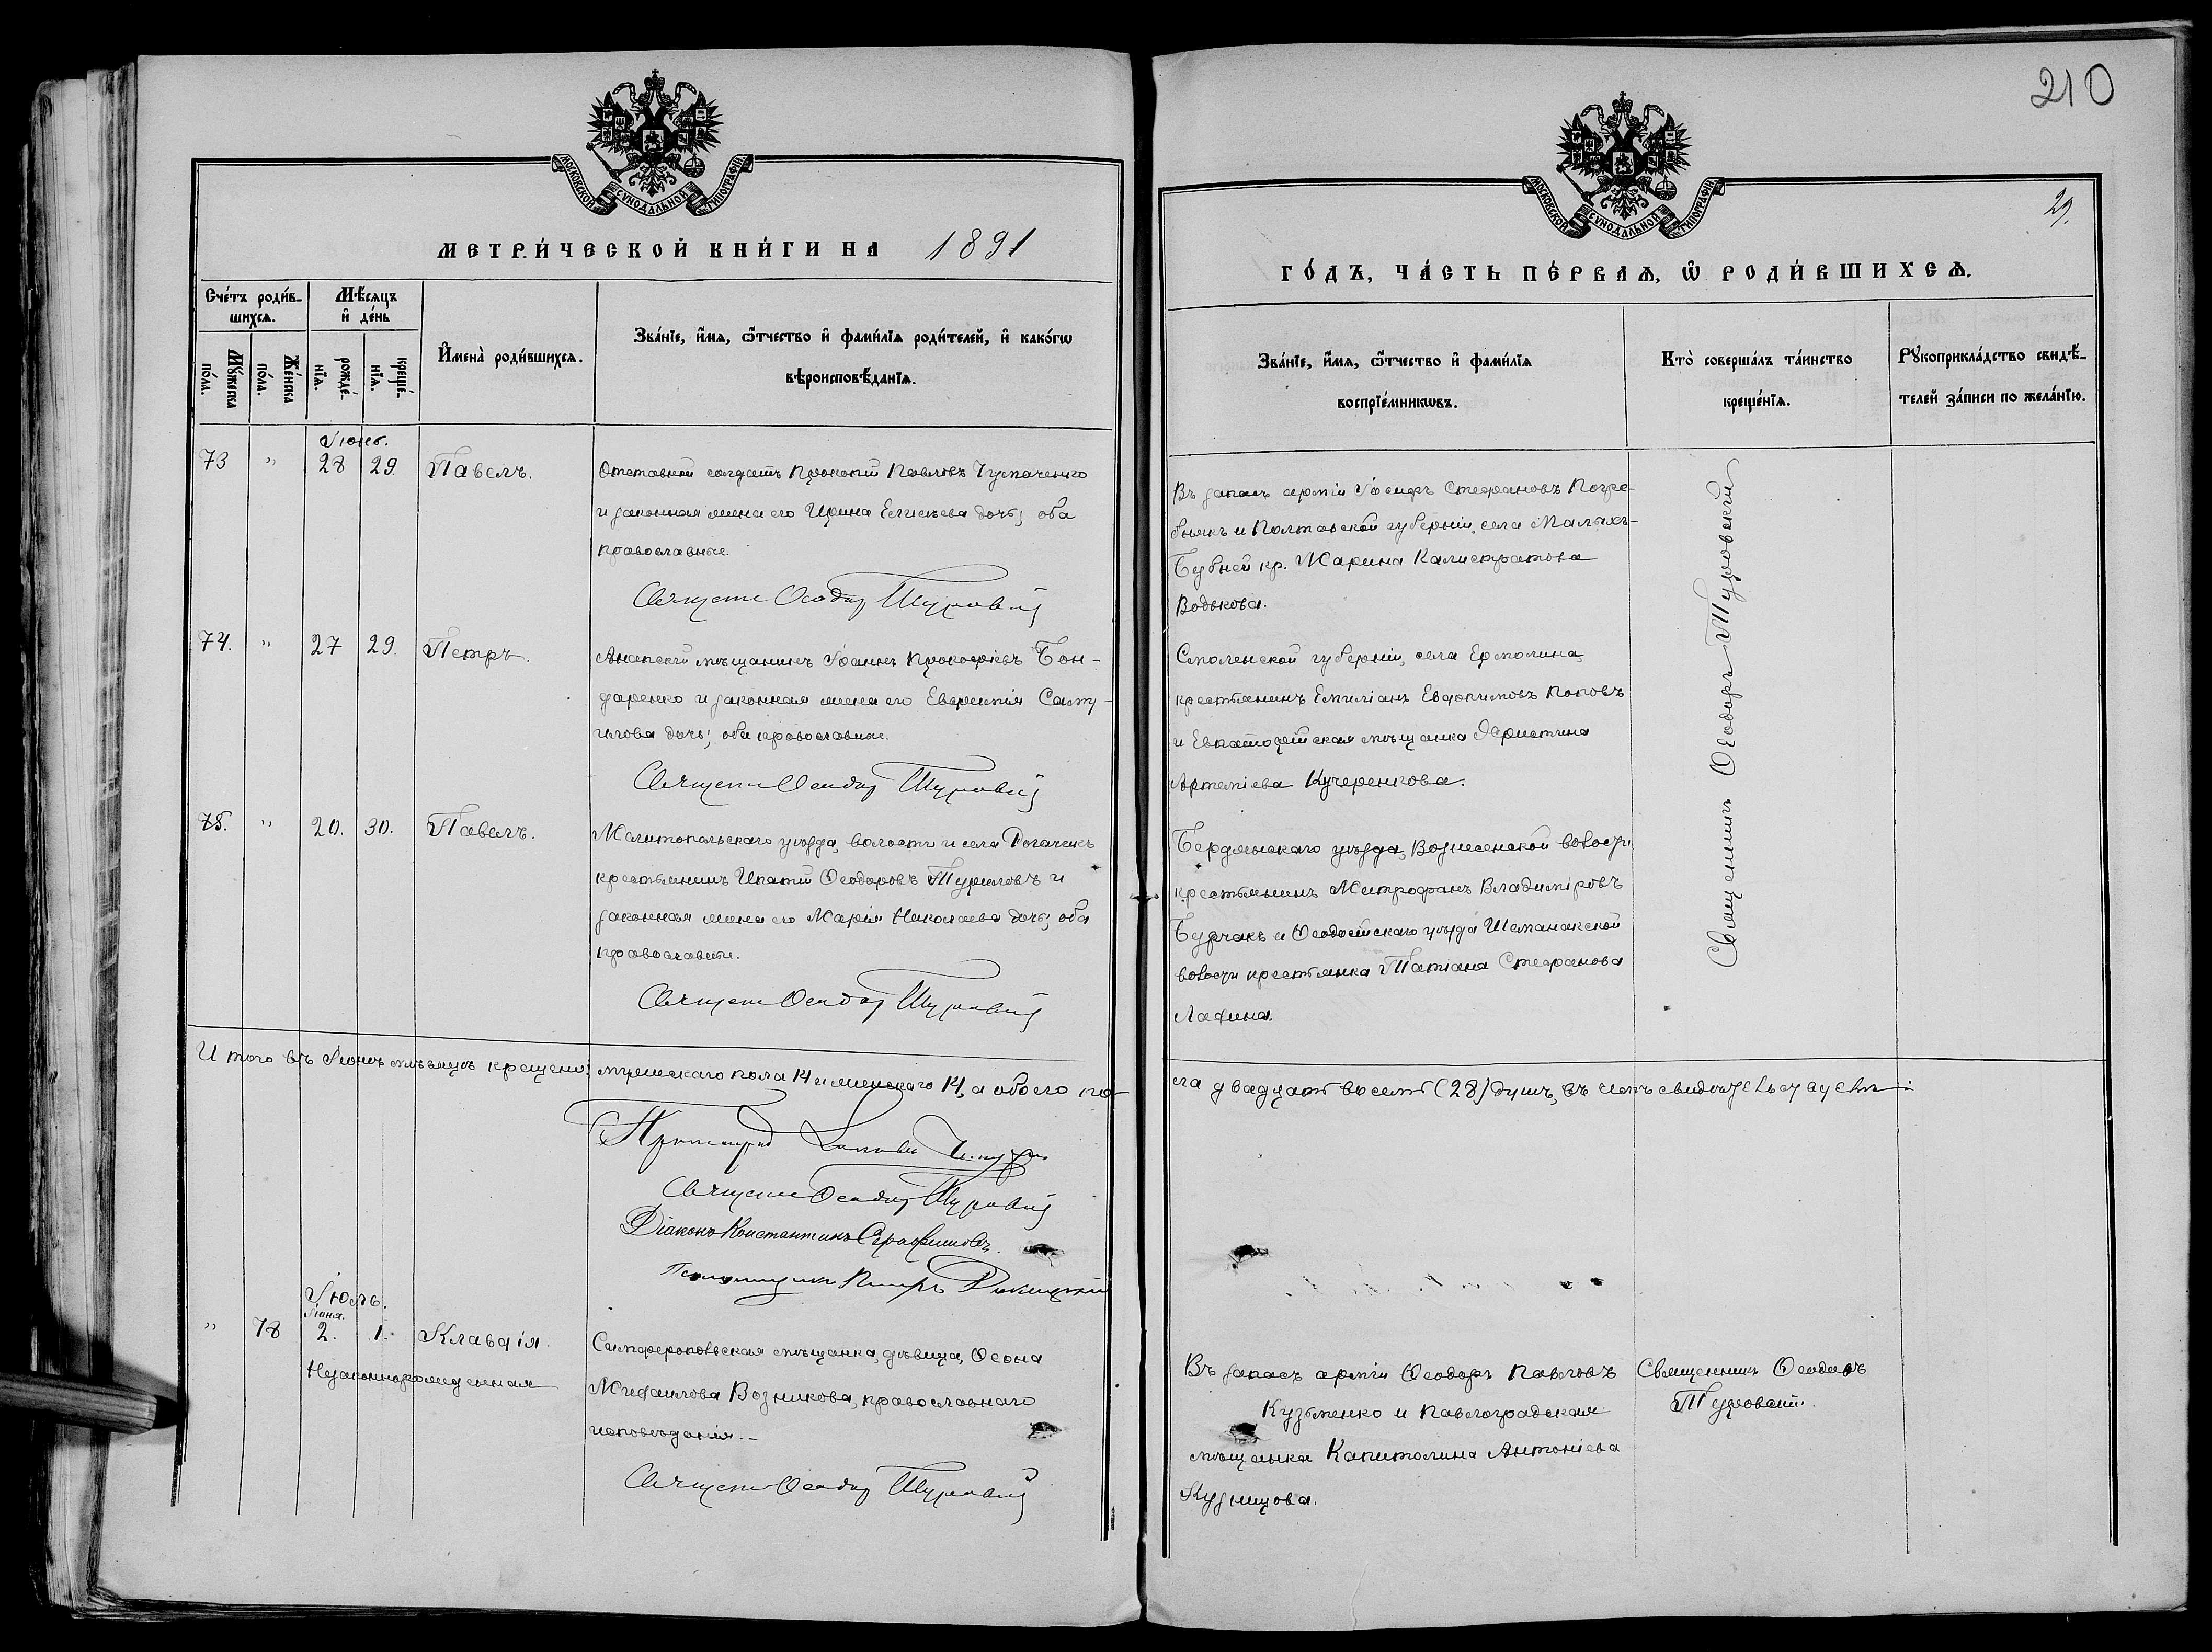 210
29.
МОСКОВСКОЙ СѴНОДАЛЬНОЙ ТИПОГРАФІИ
МОСКОВСКОЙ СѴНОДАЛЬНОЙ ТИПОГРАФІИ
МЕТРИ́ЧЕСКОЙ КНИ́ГИ НА 1891
ГО́ДЪ, ЧА́СТЬ ПЕ́РВАѦ, Ѿ РОДИ́ВШИХСѦ.
Сче́тъ роди́в-
шихсѧ.
Мꙋ́жеска
по́ла.
Же́нска
по́ла.
Мѣ́сѧцъ
и҆ де́нь
рожде́-
нїѧ.
креще́-
нїѧ.
И҆мена̀ роди́вшихсѧ.
Зва́нїе, и҆́мѧ, ѻ҆́тчество и҆ фами́лїѧ роди́телей, и҆ како́гѡ
вѣроисповѣ́данїѧ.
Зва́нїе, и҆́мѧ, ѻ҆́тчество и҆ фами́лїѧ
воспрїе́мникѡвъ.
Кто̀ соверша́лъ та́инство
креще́нїѧ.
Рꙋкоприкла́дство свидѣ́-
телей за́писи по жела́нїю.
Іюнь.
73 " 28 29. Павелъ.
Отставной солдатъ Прокопій Павловъ
и законная жена его Ирина Елисѣева дочь; оба
православные.
Священ Ѳеодор Туровскій
Въ запасѣ арміи Іосифъ Стефановъ Погре-
бнякъ и Полтавской губерніи, села Малыхъ-
Бубней кр. Марина Калистратова
Водькова.
Священникъ Ѳеодоръ Туровскій
74. " 27 29. Петръ.
Анапскій мѣщанинъ Іоаннъ Прокофіевъ Бон-
даренко и законная жена его Евфимія Саму-
илова дочь; оба православные.
Священ Ѳеодор Туровскій
Смоленской губерніи, села Ермолина,
крестьянинъ Емиліанъ Евдокимовъ Поповъ
и Евпаторійская мѣщанка Христина
Артеміева Кучеренкова.
75. " 20. 30. Павелъ.
Мелитопольскаго уѣзда, волости и села Рогачикъ
крестьянинъ Ипатій Ѳеодоровъ Туриловъ и
законная жена его Марія Николаева дочь; оба
православные.
Священ Ѳеодор Туровскій
Бердянскаго уѣзда, Вознесенской волости
крестьянинъ Митрофанъ Владиміровъ
Бурчакъ и Ѳеодосійскаго уѣзда Шеманакской
волости крестьянка Татіана Стефанова
Лапина.
Итого въ Іюнѣ мѣсяцѣ крещено: мужескаго пола 14 и женскаго 14, а обоего по-
ла двадцать восемь (28) душъ, въ чемъ свидѣтельствуемъ:
Протоіерей
Священ Ѳеодор Туровскій
Діаконъ Константинъ Серафимовъ.
Псаломщикъ Петръ
Іюль.
Іюня.
" 78 2. 1. Клавдія.
Незаконнорожденная
Симферопольская мѣщанка, дѣвица, Ѳеона
Михаилова Возникова, православнаго
исповѣданія.–
Священ Ѳеодор Туровскій
Въ запасѣ арміи Ѳеодоръ Павловъ
Кузьменко и Павлоградская
мѣщанка Капитолина Антоніева
Кузнецова.
Священникъ Ѳеодоръ
Туровскій.